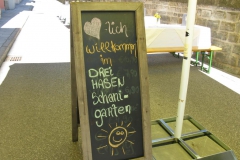 lich
willkommen
im
DREI
HASEN
Schani-
garten